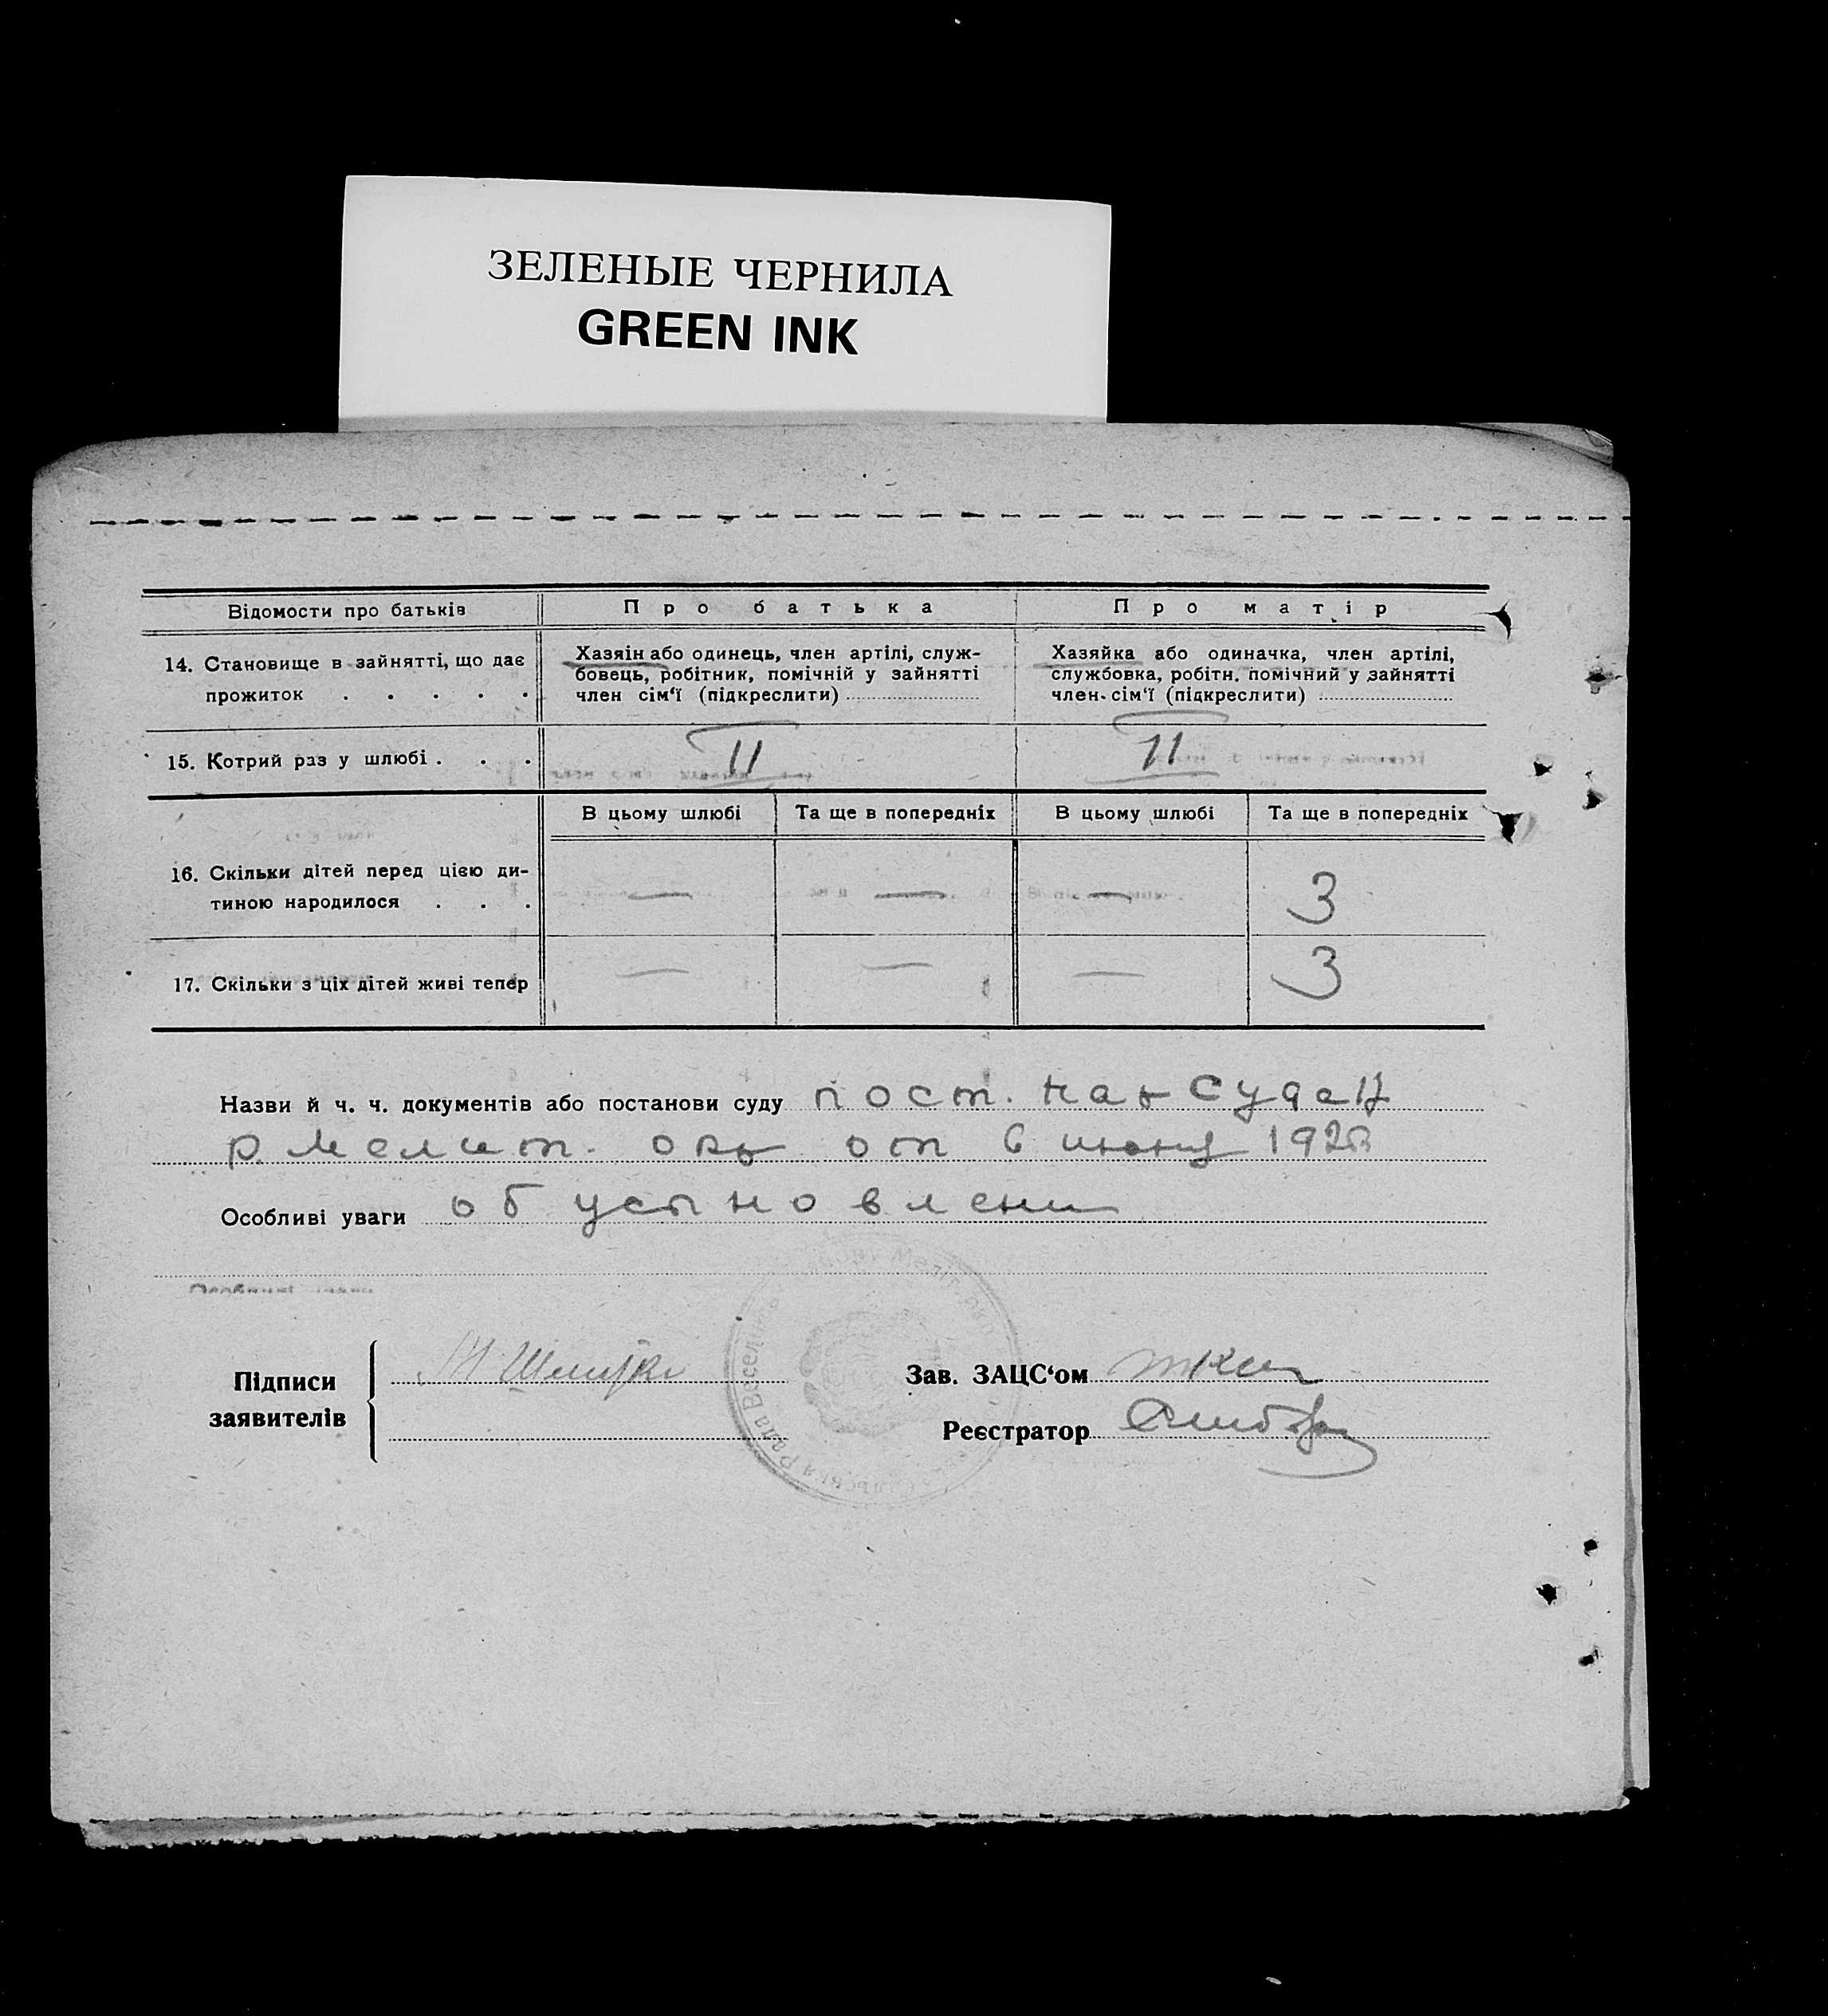 ЗЕЛЕНЫЕ ЧЕРНИЛА
GREEN INK
Відомости про батьків
Про батька
Про матір
14. Становище в зайнятті, що дає
прожиток . . . . .
Хазяїн або одинець, член артілі, служ-
бовець, робітник, помічній у зайнятті
член сім‘ї (підкреслити)
Хазяйка або одиначка, член артілі,
службовка, робітн. помічний у зайнятті
член сім‘ї (підкреслити)
15. Котрий раз у шлюбі . . .
II
II
В цьому шлюбі
Та ще в попередніх
В цьому шлюбі
Та ще в попередніх
16. Скільки дітей перед цією ди-
тиною народилося . . .
—
—
—
3
17. Скільки з ціх дітей живі тепер
—
—
—
3
Назви й ч. ч. документів або постанови суду пост. нар Суда
р. Мелит. окр от 6 июня 1928
Особливі уваги об усыновлени
Підписи
заявителів
Зав. ЗАЦС‘ом
Реєстратор
Рада Весел